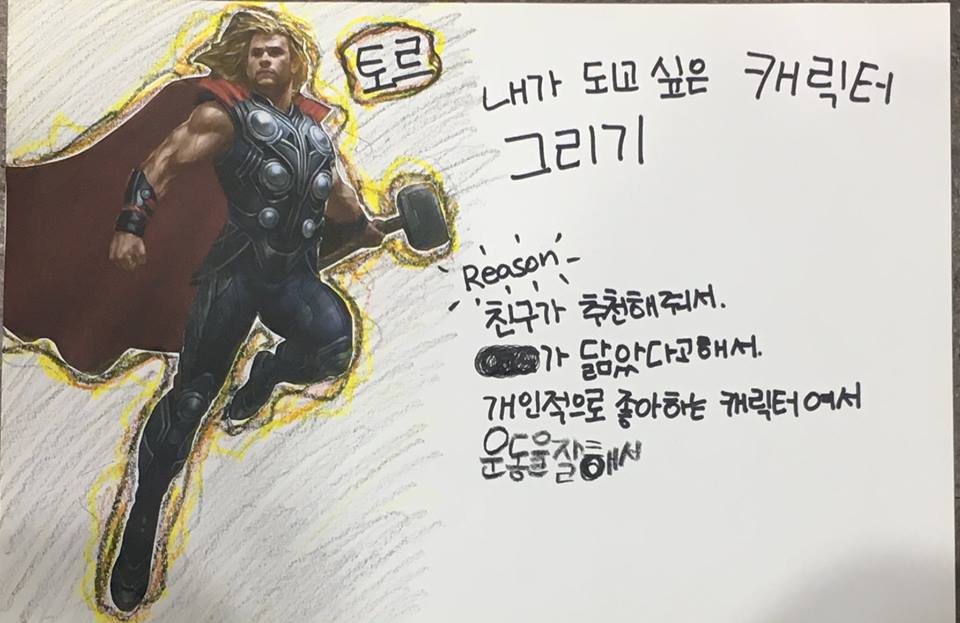 토르
내가 도고 싶은 캐릭터
그리기
Reason
친구가 추천해줘서.
가 닮았다고해서.
개인적으로 좋아하는 캐릭터여서
운동을잘해서